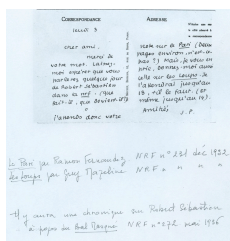 CORRESPONDANCE
lundi 3
cher ami,
merci de
votre mot. Laissez-
moi espérer que vous
parlerez quelque jour
de Robert Sébastien
dans la nrf. (Que
fait-il, que devient-il ?)
J'attends donc votre
ADRESSE
note sur le Pari (deux
pages environ, n'est-ce
pas ?) Mais, je vous en
prie, donnez-moi aussi
celle sur les Loups. Je
l'attendrai jusqu'au
13, s'il le faut. (et
même jusqu'au 14).
Amitiés
J. P.
Le Pari par Ramon Fernandez N.R.F n° 231 déc 1932
Les Loups par Guy Mazeline N.R.F " " "
Il y aura une chronique sur Robert Sébastien
à propos du Bal Masqué N.R.F n° 272 mai 1936